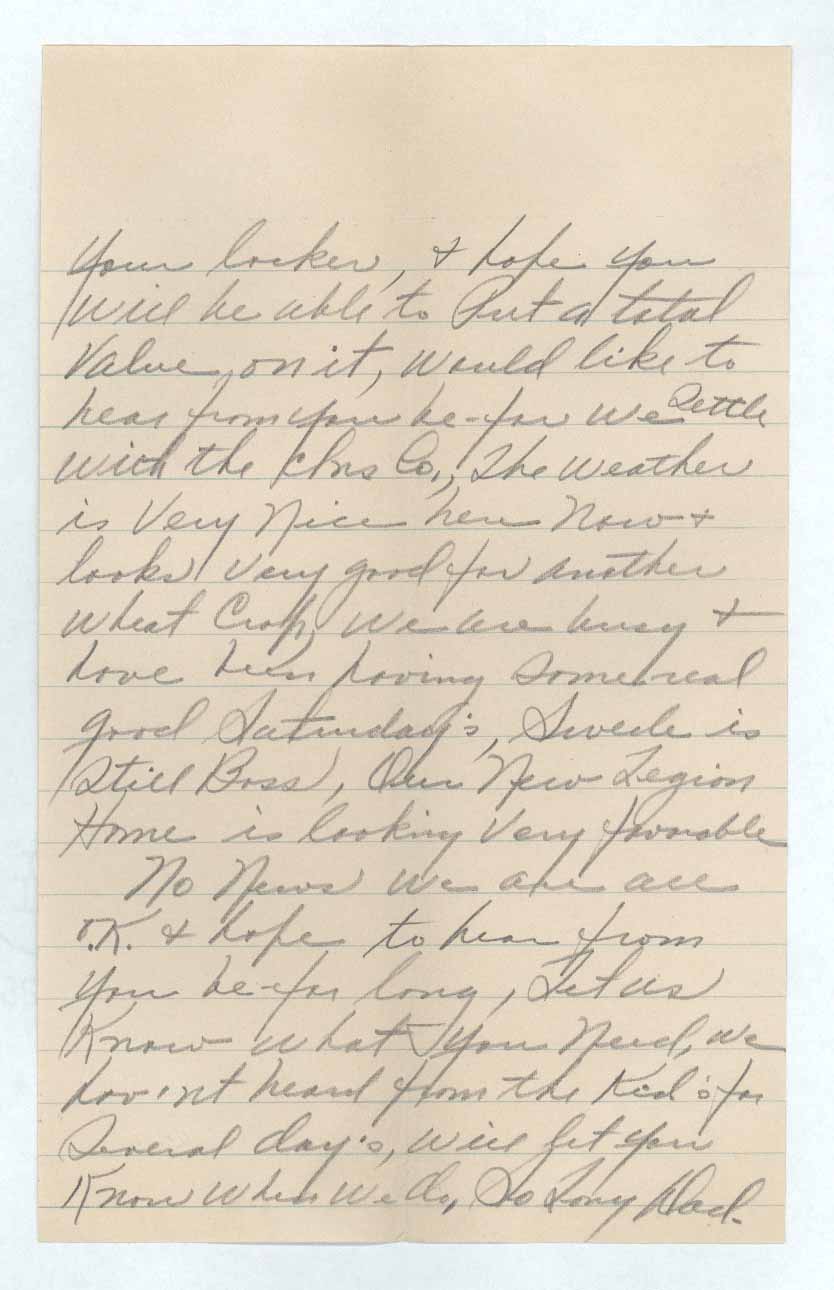 Your locker, & hope you
Will be able to Put a total
Value on it, would like to
hear from you be-for We Settle
with the Ins Co., The Weather
is Very Nice here Now &
looks very good for another
Wheat Crop, We are busy &
have been having some real
good Saturday's, Swede is
Still Boss, Our New Legion
Home is looking Very favorable
No News we are all
O.K. & hope to hear from
you be-for long, Let us
Know what You Need, we
hav'nt heard from the Kid's for
Several day's, will let you
Know When We do, So Long Dad.